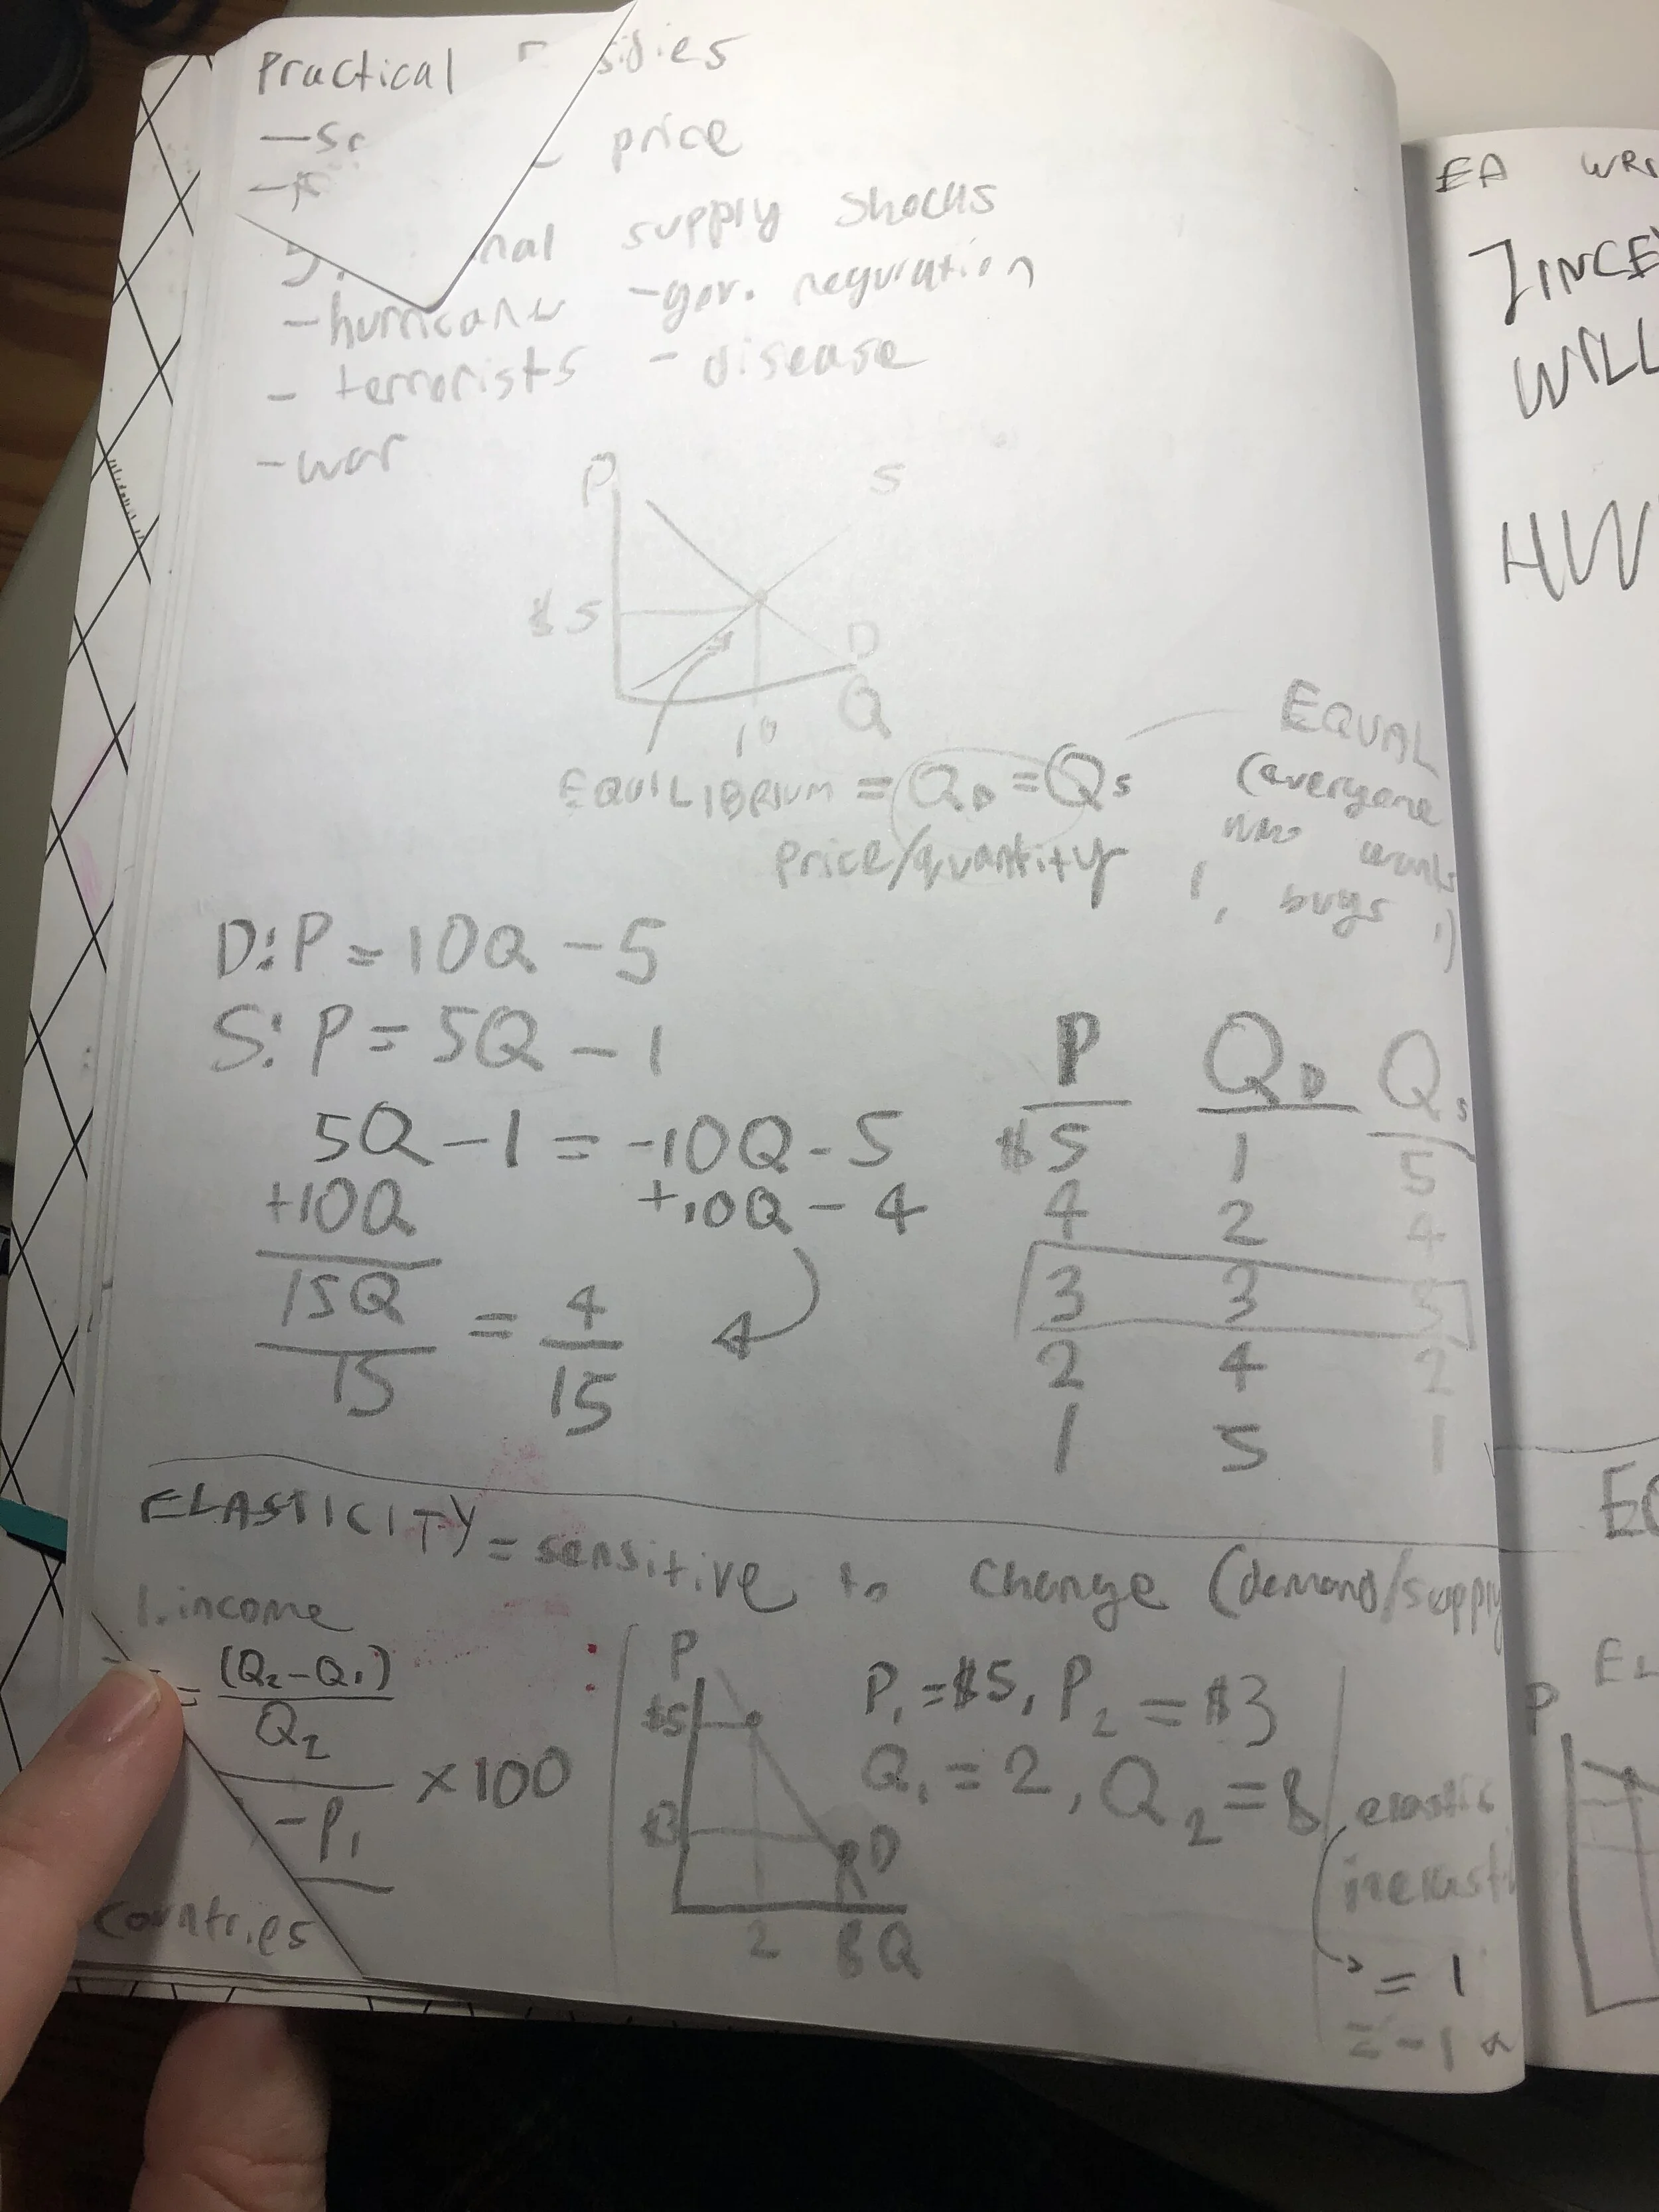 Practical sidies
price
nal supply shocks
-hurricane -gov. reguration
- terrorists - disease
-war
P S
$5
D
10 Q
EQUILIBRIUM = QD = Qs
Price/quantity
EQUAL
(everyone
who wants
, buys
D: P = 10Q - 5
S: P = 5Q - 1
5Q - 1 = -10Q - 5
+10Q +10Q - 4
15Q = 4
15 15
P QD Qs
$5 1 5
4 2 4
3 3 3
2 4 2
1 5 1
ELASTICITY = sensitive to change (demand/supply
1. income
= (Q2-Q1)
Q2
x100
-P1
countries
P
$5
D
2 8 Q
P1 = $5, P2 = $3
Q1 = 2, Q2 = 8
elastic
inelasti
= 1
= -1
EA WRI
WILL
HW
EQ
EL
P